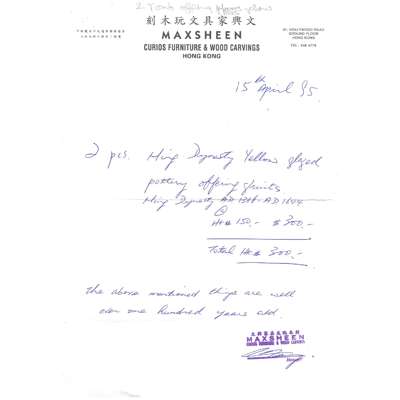 2 Tomb offering
刻木玩文具家興文
MAXSHEEN
CURIOS FURNITURE & WOOD CARVINGS
HONG KONG
HOLLYWOOD ROAD
GROUND FLOOR
HONG KONG
15th April 95.
2 pcs. Ming Dynasty Yellow glzed
pottery offering fruits
Ming Dynasty AD 1368 - AD 1644
@
HK$ 150.- $ 300.-
Total HK$ 300.-
The above mentioned things are well
over one hundred years old.
MAXSHEEN
CURIOS FURNITURE & WOOD CARVINGS